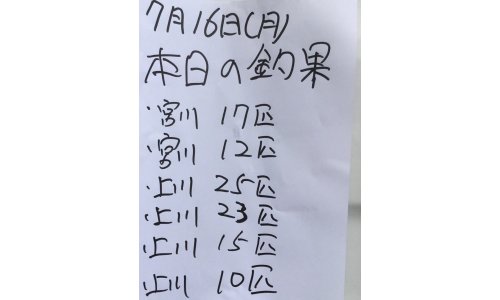 7月16日(月)
本日の釣果
・宮川 17匹
・宮川 12匹
・上川 25匹
・上川 23匹
・上川 15匹
・上川 10匹